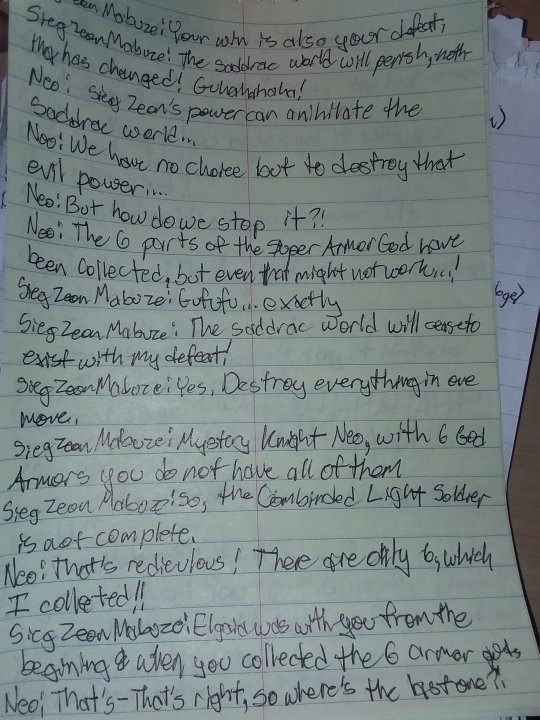 Sieg Zeon Mabuze: Your win is also your defeat,
Sieg Zeon Mabuze: The saddrac world will perish, noth
has changed! Guhahahaha!
Neo: Sieg Zeon's power can anihilate the
Saddrac world...
Neo: We have no choice but to destroy that
evil power....
Neo: But how do we stop it?!
Neo: The 6 parts of the Super Armor God have
been collected, but even that might not work...!
Sieg Zeon Mabuze: Gufufu... exactly
Sieg Zeon Mabuze: The saddrac world will cease to
exist with my defeat!
Sieg Zeon Mabuze: Yes, Destroy everything in one
move.
Sieg Zeon Mabuze: Mystery Knight Neo, with 6 God
Armors you do not have all of them
Sieg Zeon Mabuze: So, the Combinded Light Soldier
is not complete.
Neo: That's rediculous! There are only 6, which
I colleted!!
Sieg Zeon Mabuze: Elgaia was with you from the
begining & when you collected the 6 armor gods
Neo: That's-That's right, so where's the last one?!